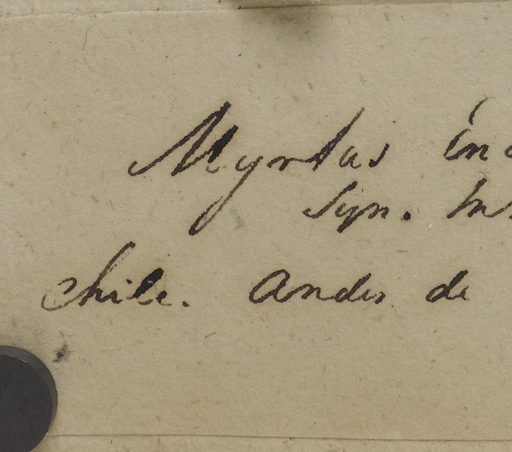 Myrtus
Syn.
Chile. Andes de